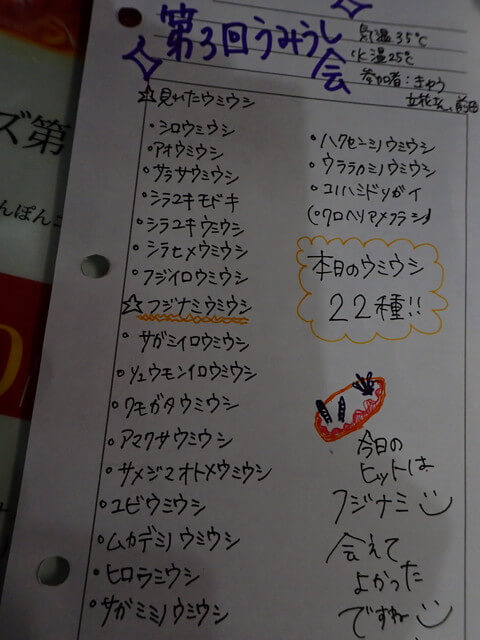 第3回うみうし
会
気温35℃
水温25℃
参加者:きゅう
☆見れたウミウシ
・シロウミウシ
・アオウミウシ
・サラサウミウシ
・シラユキモドキ
・シラユキウミウシ
・シラヒメウミウシ
・フジイロウミウシ
☆フジナミウミウシ
・サガミイロウミウシ
・リュウモンイロウミウシ
・クモガタウミウシ
・アマクサウミウシ
・サメジマオトメウミウシ
・ユビウミウシ
・ムカデミノウミウシ
・ヒロウミウシ
・サガミミノウミウシ
・ハクセンミノウミウシ
・ウララカミノウミウシ
・コノハミドリガイ
(・クロヘリアメフラシ)
本日のウミウシ
22種!!
今日の
ヒットは
フジナミ
会えて
よかった
ですね
ズ第
んぽん